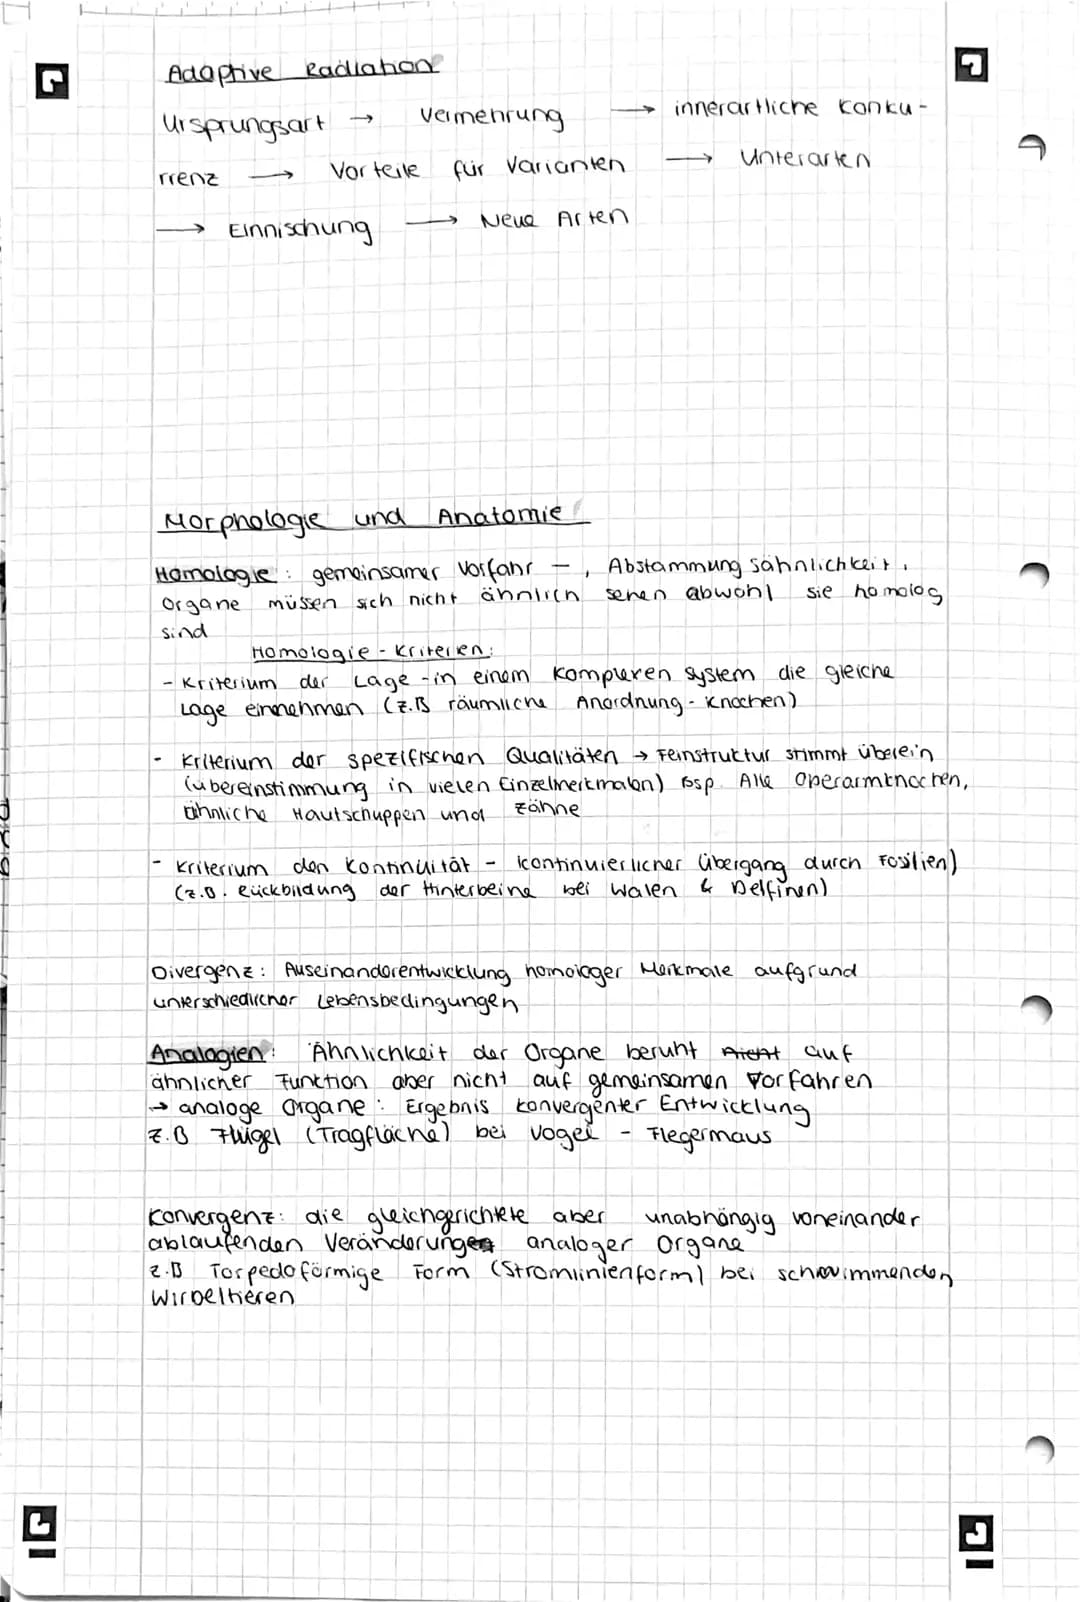 Adaptive Radiation
Ursprungsart → Vermehrung → innerartliche Konku-
rrenz → Vorteile für Varianten → Unterarten
→ Einnischung → Neue Arten
Morphologie und Anatomie
Homologie: gemeinsamer Vorfahr -, Abstammungsähnlichkeit,
Organe müssen sich nicht ähnlich sehen abwohl sie homolog
sind
Homologie-Kriterien:
- Kriterium der Lage - in einem komplexen System die gleiche
Lage einnehmen (z.B räumliche Anordnung - Knochen)
- Kriterium der spezifischen Qualitäten → Feinstruktur stimmt überein
(übereinstimmung in vielen Einzelmerkmalen) Bsp. Alle Operarmknochen,
ähnliche Hautschuppen und Zähne
- Kriterium den Kontinuität - kontinuierlicher Übergang durch Fosilien)
(z.B. Rückbildung der Hinterbeine bei Walen & Delfinen)
Divergenz: Auseinanderentwicklung homologer Merkmale aufgrund
unterschiedlicher Lebensbedingungen
Analogien: Ähnlichkeit der Organe beruht nicht auf
ähnlicher Funktion aber nicht auf gemeinsamen Vorfahren
→ analoge Organe: Ergebnis konvergenter Entwicklung
z.B Flügel (Tragfläche) bei Vogel - Flegermaus
Konvergenz: die gleichgerichtete aber unabhängig voneinander
ablaufenden Veränderungen analoger Organe
z.B Torpedoförmige Form (Stromlinienform) bei schwimmenden
Wirbeltieren